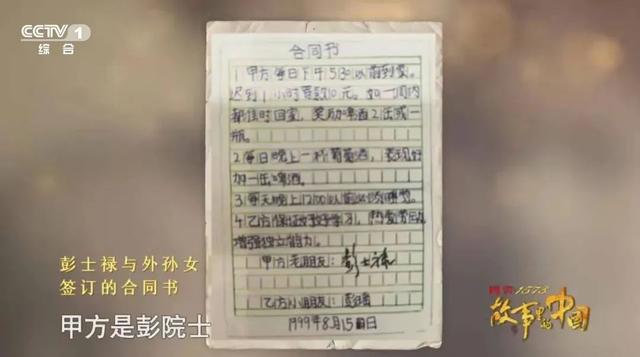 CCTV 1
综合
合同书
1 甲方每日下午5:30以前到家。
迟到1小时罚款10元。如一周内
都准时回家，奖励啤酒2缶或一
瓶。
2 每日晚上一杯葡萄酒，表现好
加一缶啤酒。
3 每天晚上12:00以前必须睡觉。
4 乙方保证好好学习，热爱劳动，
增强独立能力。
甲方老朋友：彭士禄
乙方小朋友：
1999年8月15日
彭士禄与外孙女
签订的合同书
甲方是彭院士
国窖1573
故事里的中国